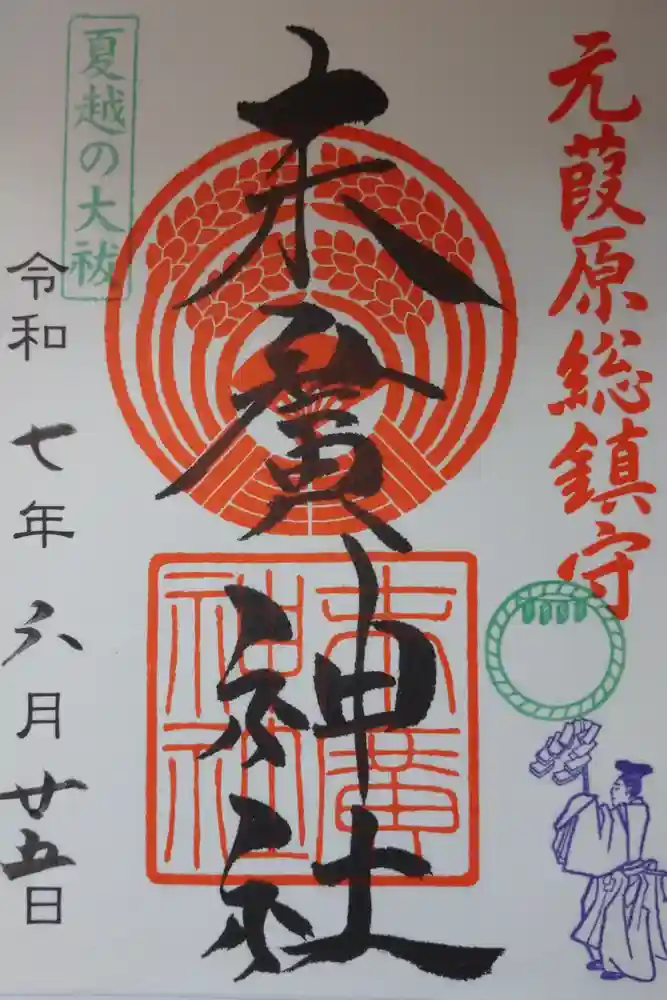 元葭原総鎮守
末廣神社
末廣
神社
夏越の大祓
令和 七年 六月 廿五日